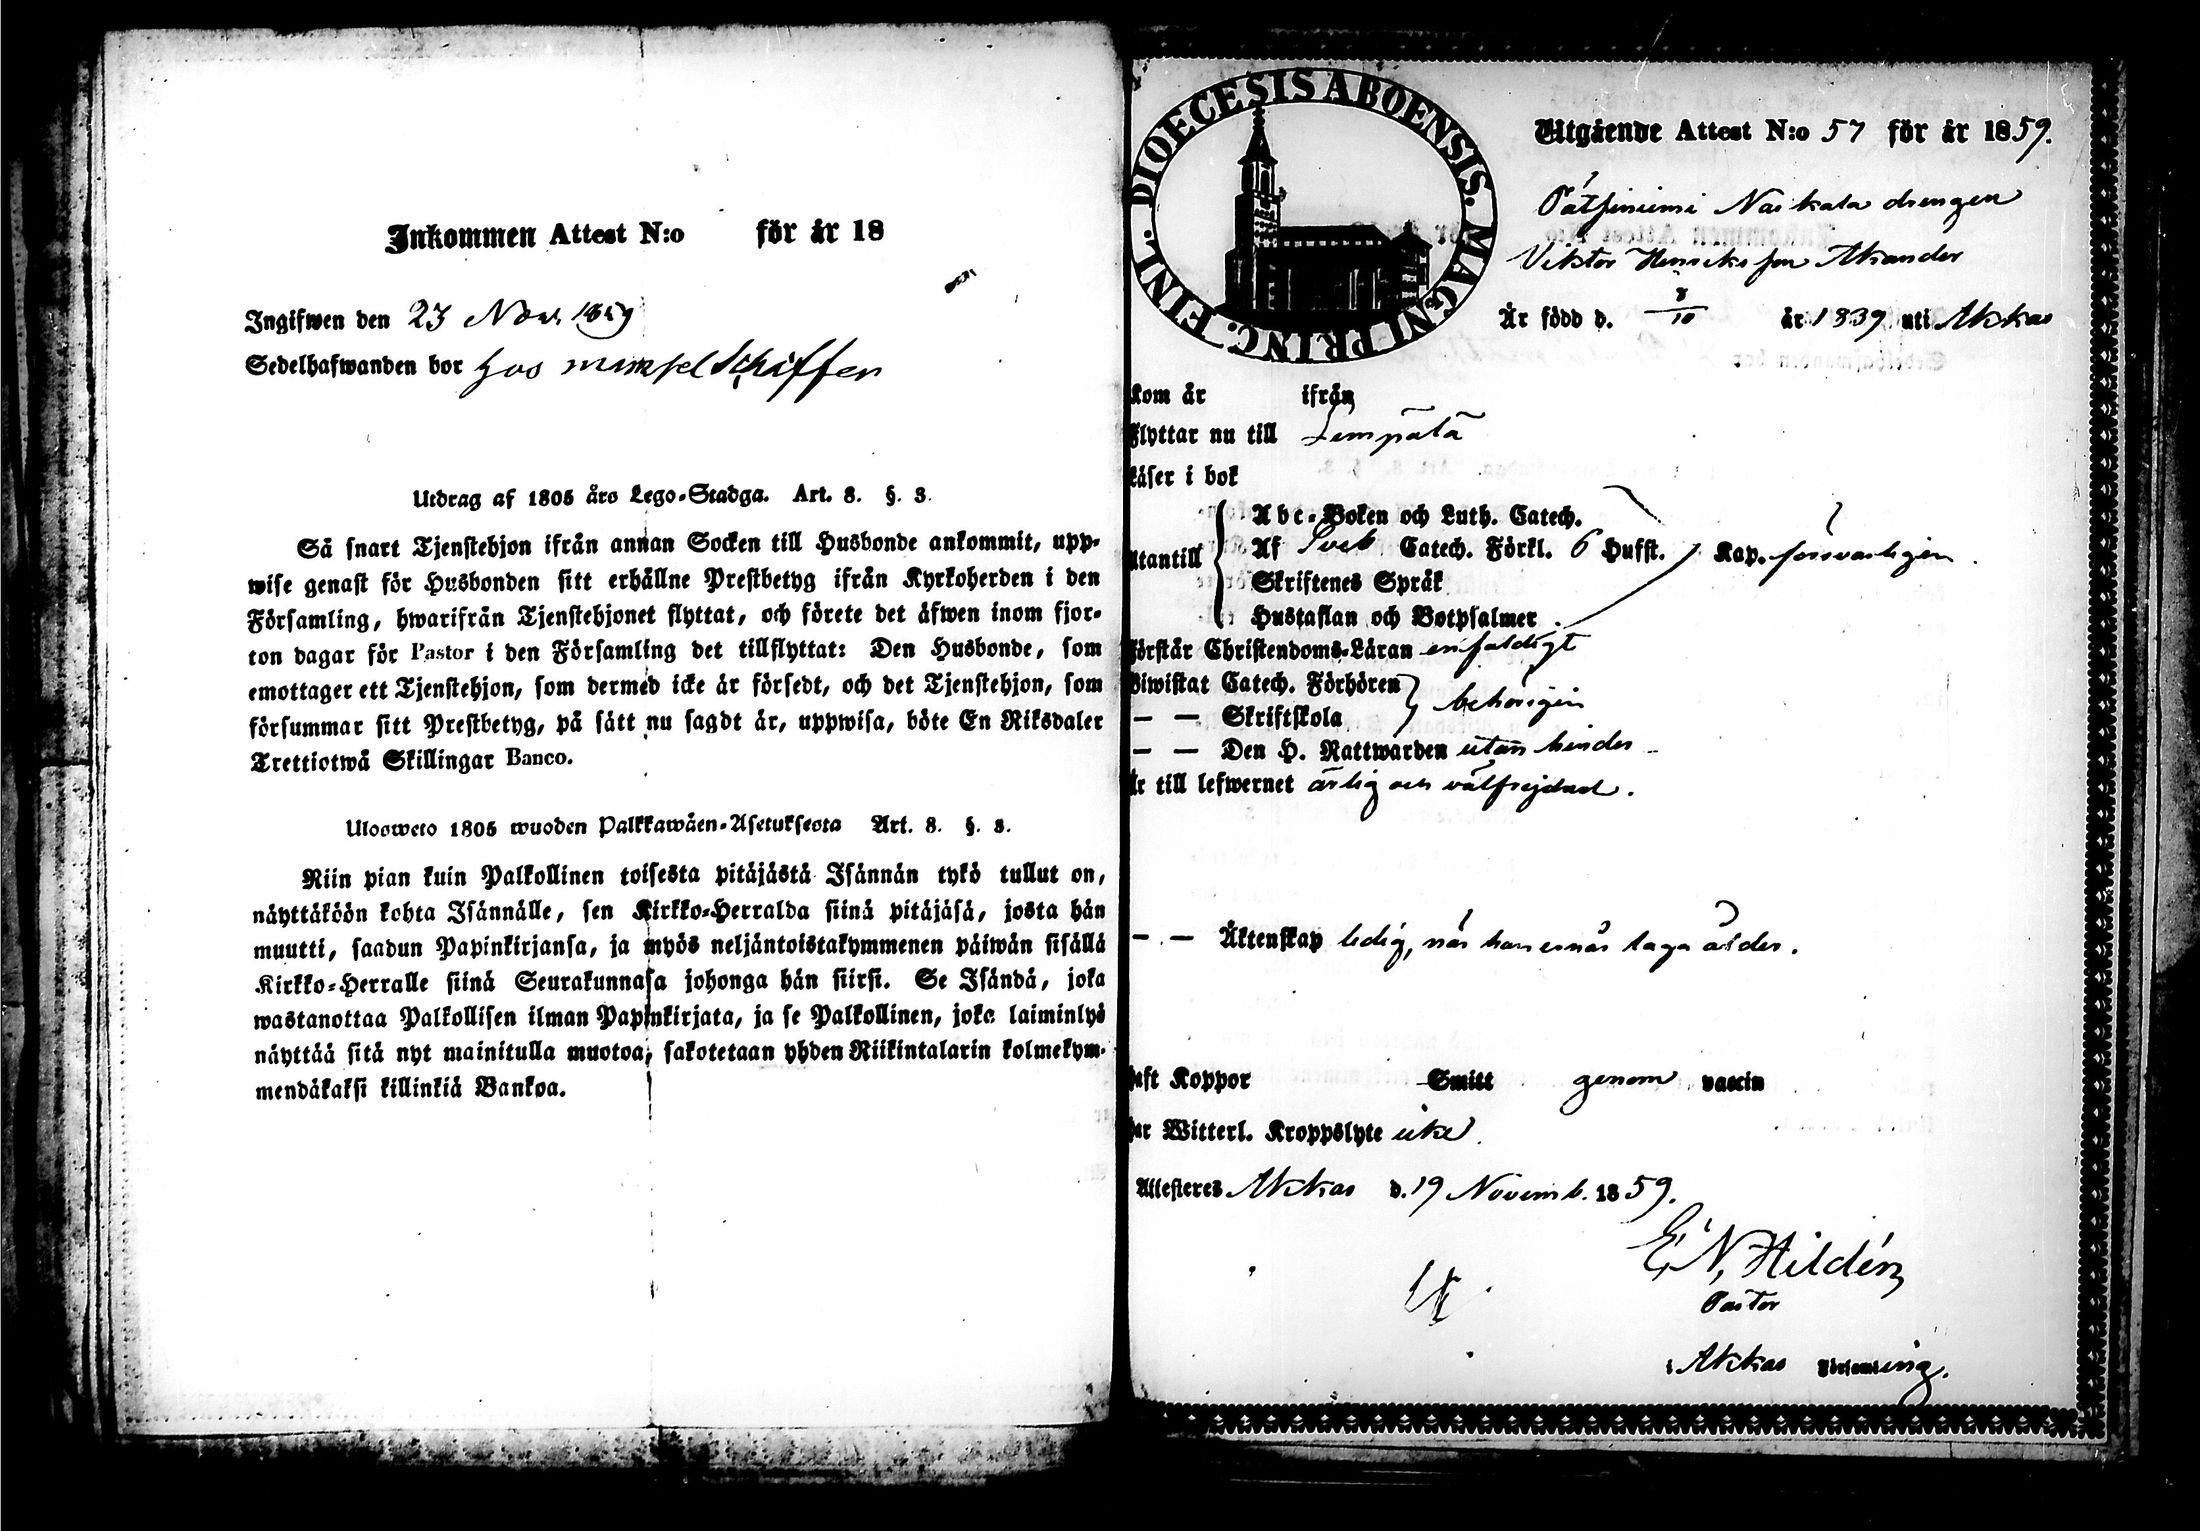 Inkommen Attest N:o för år 18
Ingifwen den 23 Nov. 1859
Sedelhafwanden bor hos
Utdrag af 1805 års Lego-Stadga. Art. 8. §. 3.
Så snart Tjenstehjon ifrån annan Socken till Husbonde ankommit, upp-
wise genast för Husbonden sitt erhållne Prestbetyg ifrån Kyrkoherden i den
Församling, hwarifrån Tjenstehjonet flyttat, och förete det äfwen inom fjor-
ton dagar för Pastor i den Församling det tillflyttat: Den Husbonde, som
emottager ett Tjenstehjon, som dermed icke är försedt, och det Tjenstehjon, som
försummar sitt Prestbetyg, på sätt nu sagdt är, uppwisa, böte En Riksdaler
Trettiotwå Skillingar Banco.
Ulosweto 1805 wuoden Palkkawäen-Asetuksesta Art. 8. §. 3.
Niin pian kuin Palkollinen toisesta pitäjästä Isännän tykö tullut on,
näyttäköön kohta Isännälle, sen Kirkko-Herralda siinä pitäjäsä, josta hän
muutti, saadun Papinkirjansa, ja myös neljäntoistakymmenen päiwän sisällä
Kirkko-Herralle siinä Seurakunnasa johonga hän siirsi. Se Isändä, joka
wastanottaa Palkollisen ilman Papinkirjata, ja se Palkollinen, joka laiminlyö
näyttää sitä nyt mainitulla muotoa, sakotetaan yhden Riikintalarin kolmekym-
mendäkaksi killinkiä Bankoa.
FINL. DIOECESIS ABOENSIS. MAGNI PRINC.
Utgående Attest N:o 57 för år 1859.
Pätsiniemi Naskala drengen
Viktor Henriksson Akander
Är född d. 8/10 år 1839 uti Akkas
Kom år ifrån
Flyttar nu till Lempälä
Läser i bok
Abc-Boken och Luth. Catech.
Utantill Af Sveb Catech. Förkl. 6 Hufst. Kap. försvarligen
Skriftenes Språk
Hustaflan och Botpsalmer
Förstår Christendoms-Läran enfaldigt
Biwistat Catech. Förhören
— — Skriftskola behörigen
— — Den H. Nattwarden utan hinder
Är till lefwernet ärlig och välfrejdad.
— — Äktenskap ledig, när han ernår laga ålder.
Haft Koppor Smitt genom vaccin
Har Witterl. Kroppslyte icke
Attesteres Akkas d. 19 Novemb. 1859.
E. N. Hildén
Pastor
i Akkas Församling.